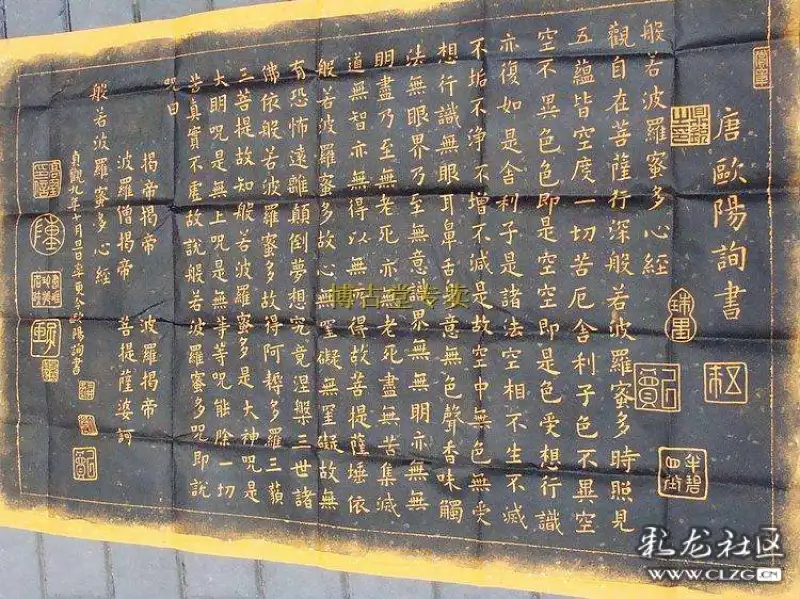 唐歐陽詢書
般若波羅蜜多心經
觀自在菩薩行深般若波羅蜜多時照見
五蘊皆空度一切苦厄舍利子色不異空
空不異色色即是空空即是色受想行識
亦復如是舍利子是諸法空相不生不滅
不垢不淨不增不減是故空中無色無受
想行識無眼耳鼻舌身意無色聲香味觸
法無眼界乃至無意識界無無明亦無無
明盡乃至無老死亦無老死盡無苦集滅
道無智亦無得以無所得故菩提薩埵依
般若波羅蜜多故心無罣礙無罣礙故無
有恐怖遠離顛倒夢想究竟涅槃三世諸
佛依般若波羅蜜多故得阿耨多羅三藐
三菩提故知般若波羅蜜多是大神咒是
大明咒是無上咒是無等等咒能除一切
苦真實不虛故說般若波羅蜜多咒即說
咒曰
揭帝揭帝 波羅揭帝
波羅僧揭帝 菩提薩婆訶
般若波羅蜜多心經
貞觀九年十月旦日率更令歐陽詢書
博古堂专卖
彩龙社区
WWW.CLZG.CN